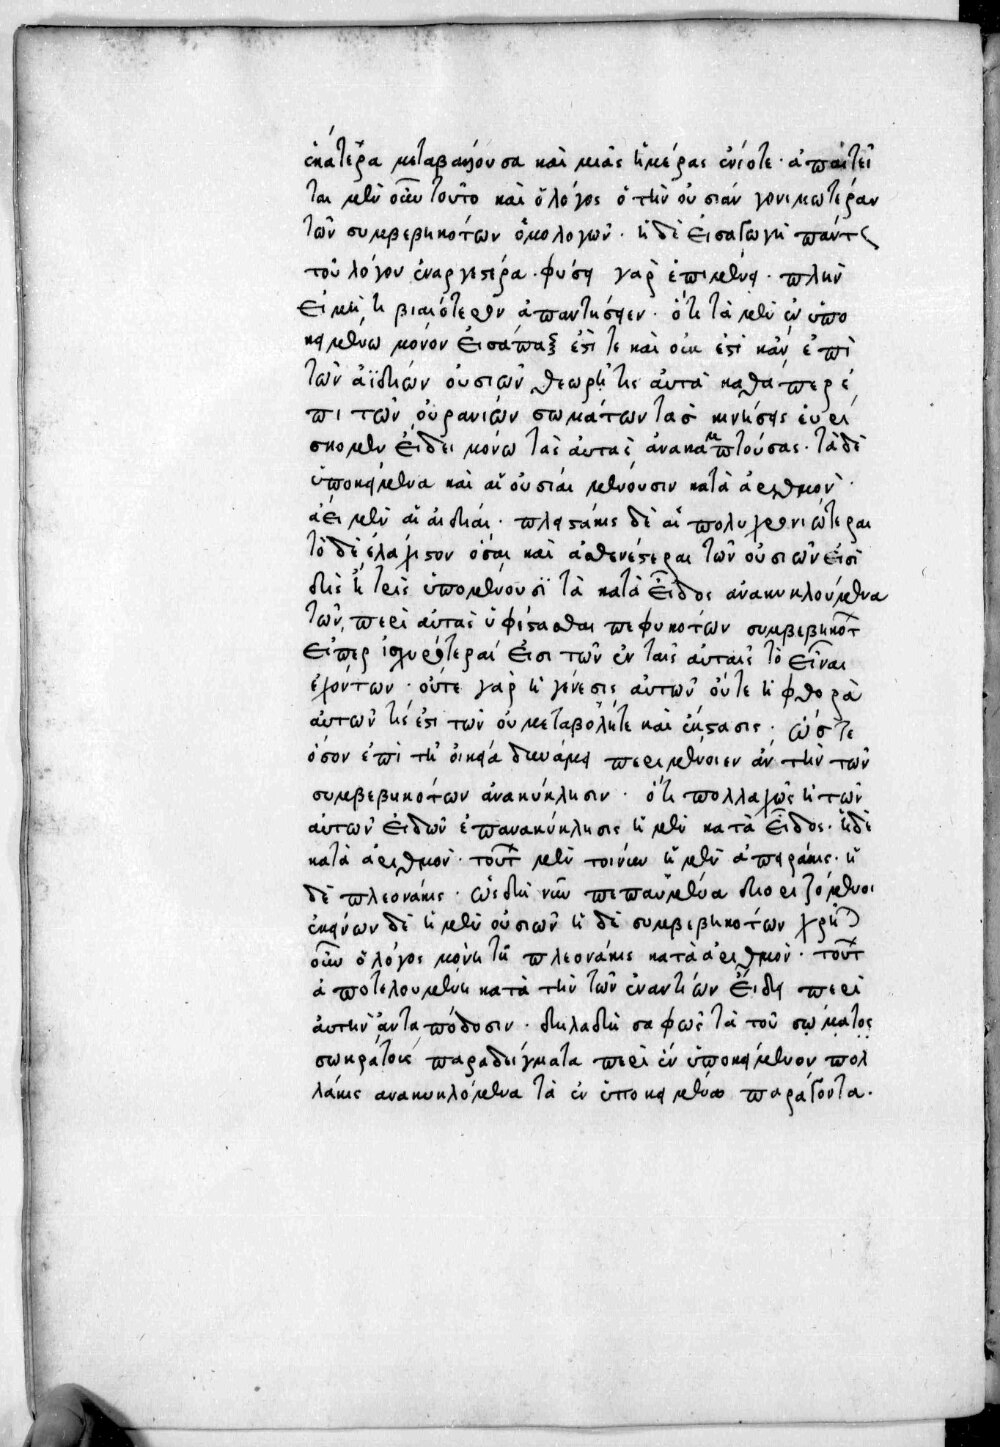 ἑκατέρα μεταβαλοῦσα καὶ μιᾶς ἡμέρας ἐνίοτε· ἀπαιτεῖ
ται μὲν οὖν τοῦτο καὶ ὁ λόγος ὁ τὴν οὐσίαν γονιμωτέραν
τῶν συμβεβηκότων ὁμολογῶν· ἡ δὲ εἰσαγωγὴ παντὸς
τοῦ λόγου ἐναργεστέρα· φύσει γὰρ ἑπομένη· πλὴν
εἰ μή τι βιαιότερον ἀπαντήσειεν· ὅτι τὰ μὲν ἐν ὑπο
κειμένω μόνον εἰσάπαξ ἐστί τε καὶ οὐκ ἐστὶ κἂν ἐπὶ
τῶν ἀϊδίων οὐσιῶν θεωρῆ τις αὐτὰ καθάπερ ἐ
πι τῶν οὐρανίων σωμάτων τὰσ κινήσεις εὑρί
σκομεν εἴδει μόνω τὰς αὐτὰς ἀνακαμπτούσας· τὰ δὲ
ὑποκείμενα καὶ αἱ οὐσίαι μένουσιν κατὰ ἀριθμὸν·
ἀεὶ μὲν αἱ ἀίδιαι· πλειστάκις δὲ αἱ πολυχρονιώτεραι
τὸ δὲ ἐλάχιστον ὅσαι καὶ ἀσθενέστεραι τῶν οὐσιῶν εἰσὶ
δὶς ἢ τρὶς ὑπομένουσϊ τὰ κατὰ εἶδος ἀνακυκλούμενα
τῶν περὶ αὐτὰς ὑφίστασθαι πεφυκότων συμβεβηκότ
εἴπερ ἰσχυρότεραί εἰσι τῶν ἐν ταῖς αὐταῖς τὸ εἶναι
ἐχόντων· οὔτε γὰρ ἡ γένεσις αὐτῶν οὔτε ἡ φθορὰ
αὐτῶν τίς ἐστι τῶν οὐ μεταβολή τε καὶ ἔκστασις· ὥστε
ὅσον ἐπὶ τῆ οἰκεία δυνάμει περιμένοιεν ἂν τὴν τῶν
συμβεβηκότων ἀνακύκλησιν· ὅτι πολλαχῶς ἡ τῶν
αὐτῶν εἰδῶν ἐπανακύκλησις ἡ μὲν κατὰ εἶδος· ἡ δὲ
κατὰ ἀριθμὸν· τούτ μὲν τοίνυν ἡ μὲν ἀπειράκις· ἡ
δὲ πλεονάκις· ὡς δὴ νῦν πεπαύμεθα διοριζόμενοι
ἐκείνων δὲ ἡ μὲν οὐσιῶν ἡ δὲ συμβεβηκότων χρῆ
οὖν ὁ λόγος μόνη τῆ πλεονάκις κατὰ ἀριθμὸν· τούτ
ἀποτελουμένη κατὰ τὴν τῶν ἐναντίων εἴδη περὶ
αὐτὴν ἀνταπόδοσιν· δηλαδὴ σαφῶς τὰ τοῦ σώματος
σωκράτους παραδείγματα περὶ ἓν ὑποκείμενον πολ
λάκις ἀνακυκλόμενα τὰ ἐν ὑποκειμένω παράγοντα·